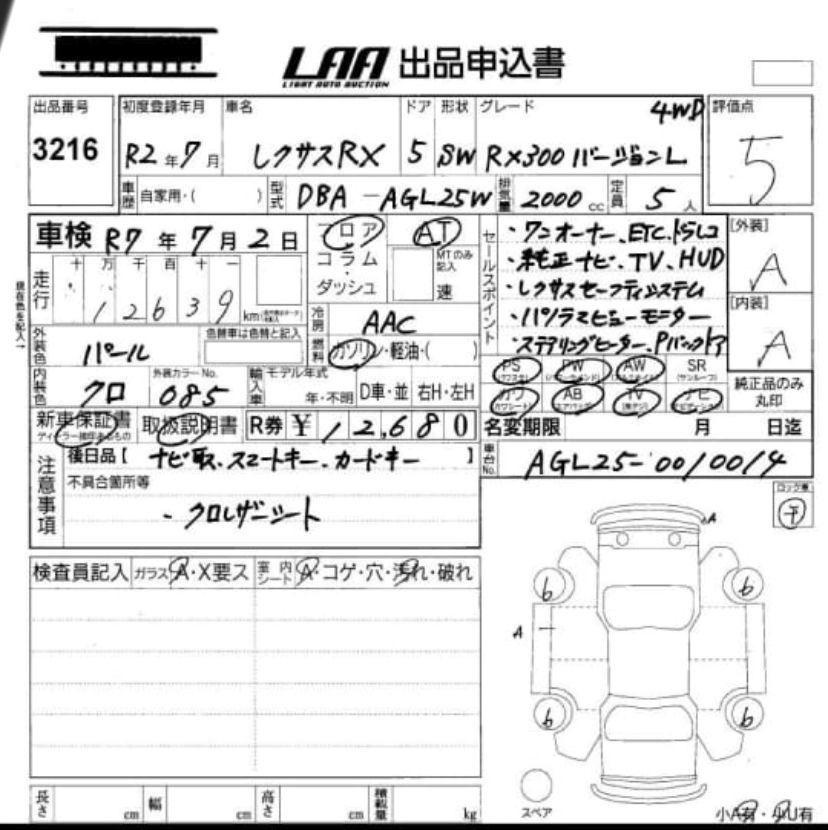 LAA 出品申込書
LIGHT AUTO AUCTION
出品番号 初度登録年月 車名 ドア 形状 グレード 4WD 評価点
3216 R2年7月 レクサスRX 5 SW RX300 バージョンL 5
車歴 自家用・( ) 型式 DBA-AGL25W 排気量 2000cc 定員 5人
車検 R7年7月2日 フロア AT
コラム・ダッシュ MTのみ記入 速
走行 十 万 千 百 十 一
12639 km
現在色を記入→
セールスポイント
・ワンオーナー、ETC、ドラレコ
・純正ナビ、TV、HUD
・レクサスセーフティシステム
・パノラミックビューモニター
・ステアリングヒーター、Pバックドア
[外装]
A
[内装]
A
外装色 パール 色替車は色替と記入
冷房 AAC
燃料 ガソリン・軽油・( )
内装色 クロ 外装カラーNo. 085
輸入車 モデル年式 年・不明 D車・並 右H・左H
PS (パワステ) PW (パワーウインド) AW (アルミホイル) SR (サンルーフ)
カワ (カワシート) AB (エアバック) TV ナビ (ナビゲーション)
純正品のみ丸印
新車保証書 取扱説明書 R券 ¥12,680
名変期限 月 日迄
注意事項
後日品【 ナビ取、スマートキー、カードキー 】
車台No. AGL25-0010014
不具合箇所等
・クロレザーシート
検査員記入 ガラス A・X要ス 室内シート A・コゲ・穴・汚れ・破れ
A
b b
A
b b
スペア
小A有・小U有
長さ cm 幅 cm 高さ cm 積載量 kg